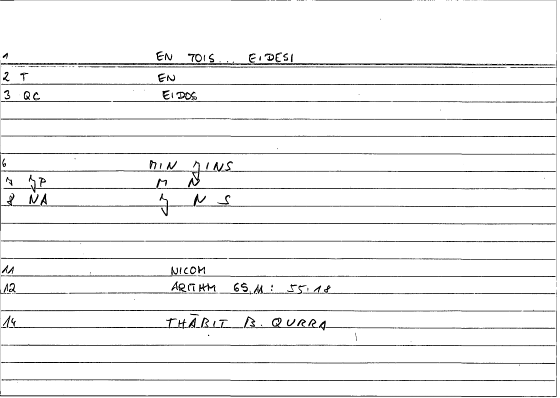 1 EN TOIS... EIDESI
2 T EN
3 QC EIDOS
6 MIN JINS
7 JP M N
8 NA J N S
11 NICOM
12 ARITHM 65,11: 55.18
14 THĀBIT B. QURRA